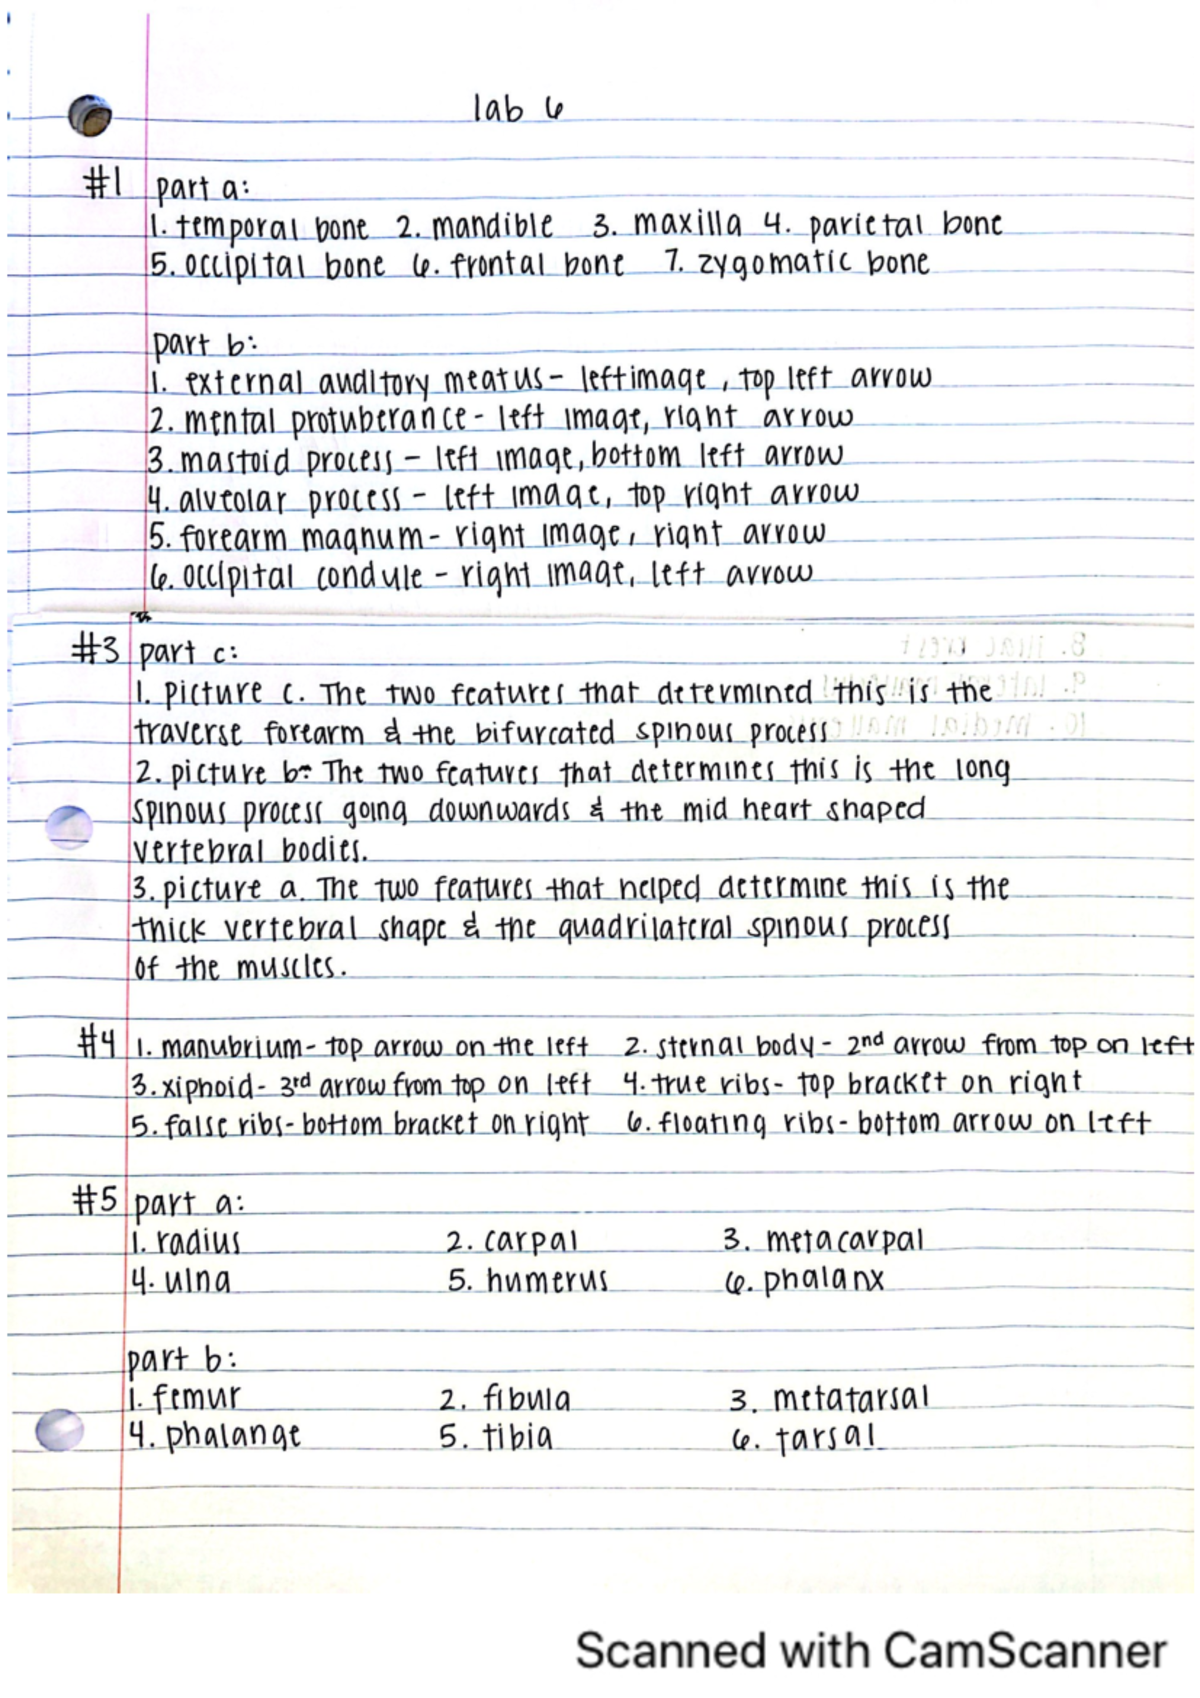 lab 6
#1 part a:
1. temporal bone 2. mandible 3. maxilla 4. parietal bone
5. occipital bone 6. frontal bone 7. zygomatic bone
part b:
1. external auditory meatus - left image, top left arrow
2. mental protuberance - left image, right arrow
3. mastoid process - left image, bottom left arrow
4. alveolar process - left image, top right arrow
5. forearm magnum - right image, right arrow
6. occipital condule - right image, left arrow
#3 part c:
1. picture c. The two features that determined this is the
traverse forearm & the bifurcated spinous process
2. picture b- The two features that determines this is the long
spinous process going downwards & the mid heart shaped
vertebral bodies.
3. picture a. The two features that helped determine this is the
thick vertebral shape & the quadrilateral spinous process
of the muscles.
#4 1. manubrium - top arrow on the left 2. sternal body - 2nd arrow from top on left
3. xiphoid - 3rd arrow from top on left 4. true ribs - top bracket on right
5. false ribs - bottom bracket on right 6. floating ribs - bottom arrow on left
#5 part a:
1. radius 2. carpal 3. metacarpal
4. ulna 5. humerus 6. phalanx
part b:
1. femur 2. fibula 3. metatarsal
4. phalange 5. tibia 6. tarsal
Scanned with CamScanner